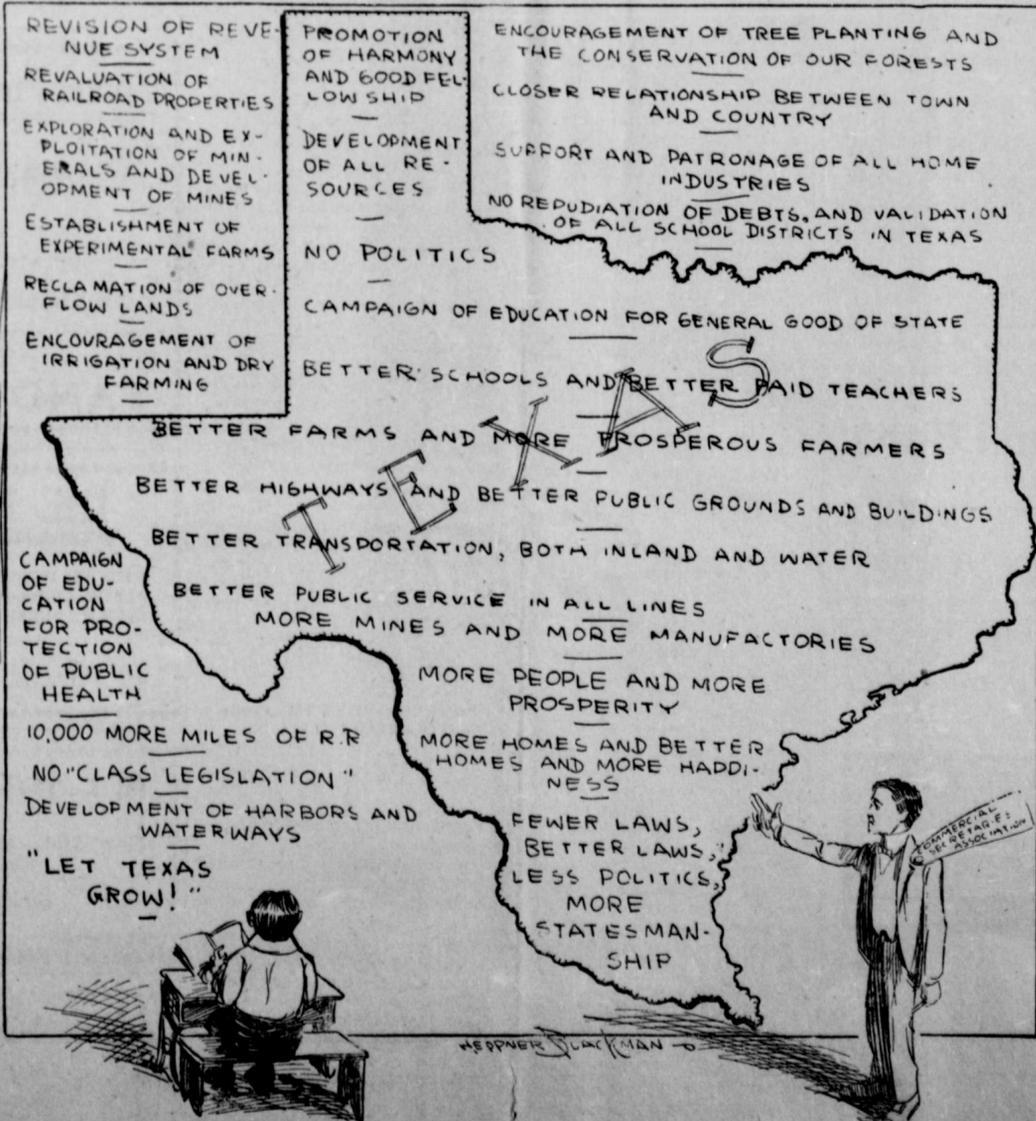 REVISION OF REVE-
NUE SYSTEM
REVALUATION OF
RAILROAD PROPERTIES
EXPLORATION AND EX-
PLOITATION OF MIN-
ERALS AND DEVEL-
OPMENT OF MINES
ESTABLISHMENT OF
EXPERIMENTAL FARMS
RECLAMATION OF OVER-
FLOW LANDS
ENCOURAGEMENT OF
IRRIGATION AND DRY
FARMING
PROMOTION
OF HARMONY
AND GOOD FEL-
LOWSHIP
DEVELOPMENT
OF ALL RE-
SOURCES
NO POLITICS
ENCOURAGEMENT OF TREE PLANTING AND
THE CONSERVATION OF OUR FORESTS
CLOSER RELATIONSHIP BETWEEN TOWN
AND COUNTRY
SUPPORT AND PATRONAGE OF ALL HOME
INDUSTRIES
NO REPUDIATION OF DEBTS, AND VALIDATION
OF ALL SCHOOL DISTRICTS IN TEXAS
CAMPAIGN OF EDUCATION FOR GENERAL GOOD OF STATE
BETTER SCHOOLS AND BETTER PAID TEACHERS
BETTER FARMS AND MORE PROSPEROUS FARMERS
BETTER HIGHWAYS AND BETTER PUBLIC GROUNDS AND BUILDINGS
BETTER TRANSPORTATION, BOTH INLAND AND WATER
BETTER PUBLIC SERVICE IN ALL LINES
MORE MINES AND MORE MANUFACTORIES
MORE PEOPLE AND MORE
PROSPERITY
MORE HOMES AND BETTER
HOMES AND MORE HAPPI-
NESS
FEWER LAWS,
BETTER LAWS,
LESS POLITICS,
MORE
STATESMAN-
SHIP
TEXAS
CAMPAIGN
OF EDU-
CATION
FOR PRO-
TECTION
OF PUBLIC
HEALTH
10,000 MORE MILES OF R.R
NO "CLASS LEGISLATION"
DEVELOPMENT OF HARBORS AND
WATERWAYS
"LET TEXAS
GROW!"
COMMERCIAL
SECRETARIES
ASSOCIATION
HEPPNER BLACKMAN